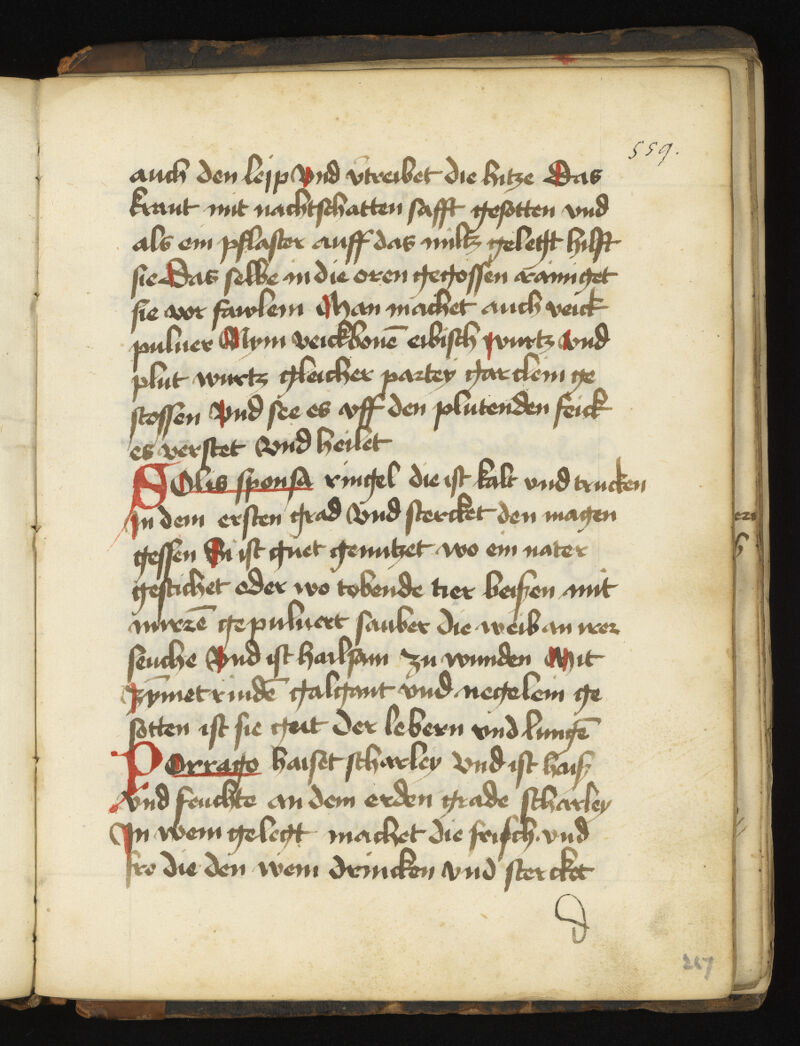 559.
auch den leip vnd v̈treibet die hitze Das
kraut mit nachtschatten safft gesotten vnd
als ein pflaster auff das miltz gelegt hilft
sie Das selbe in die oren gegossen rainiget
sie vor fawlem Man machet auch veick
puluer Nym veickbonē eibisch wurtz vnd
plut wurtz gleicher partey gar clein ge
stossen vnd see es vff den plutenden feick
es verstet vnd heilet
Solis sponsa ringel die ist kalt vnd trucken
in dem ersten grad vnd stercket den magen
gessen In ist guet genutzet wo ein nater
gestichet oder wo tobende tier beißen mit
mirrē gepuluert sauber die weib an irer
seuche Vnd ist hailsam zu wunden Mit
zÿmet rindē galgant vnd negelein ge
sotten ist sie gut der lebern vnd lungē
Porrago haiset scharley vnd ist haiß
vnd feuchte an dem erden grade scharley
In wein gelegt machet die frisch vnd
fro die den wein drincken vnd stercket
d
217